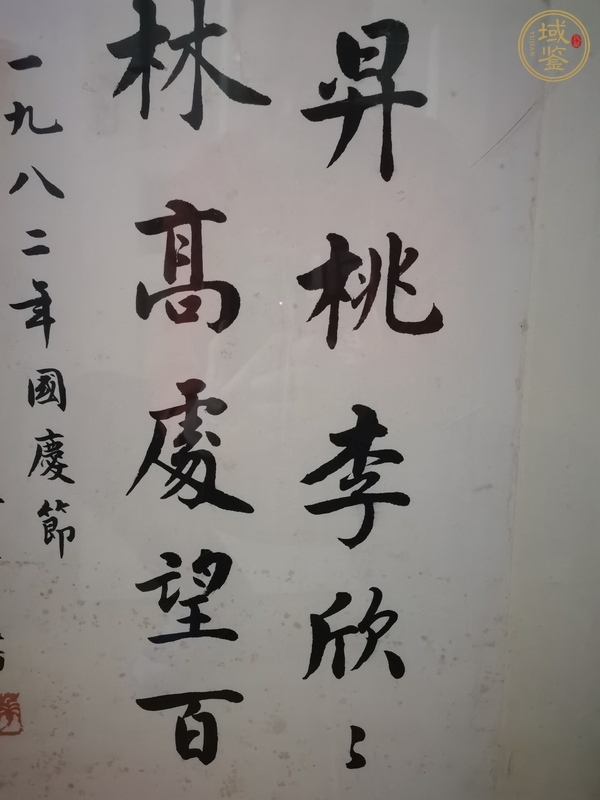 昇桃李欣〻
林高處望百
一九八二年國慶節
域鉴